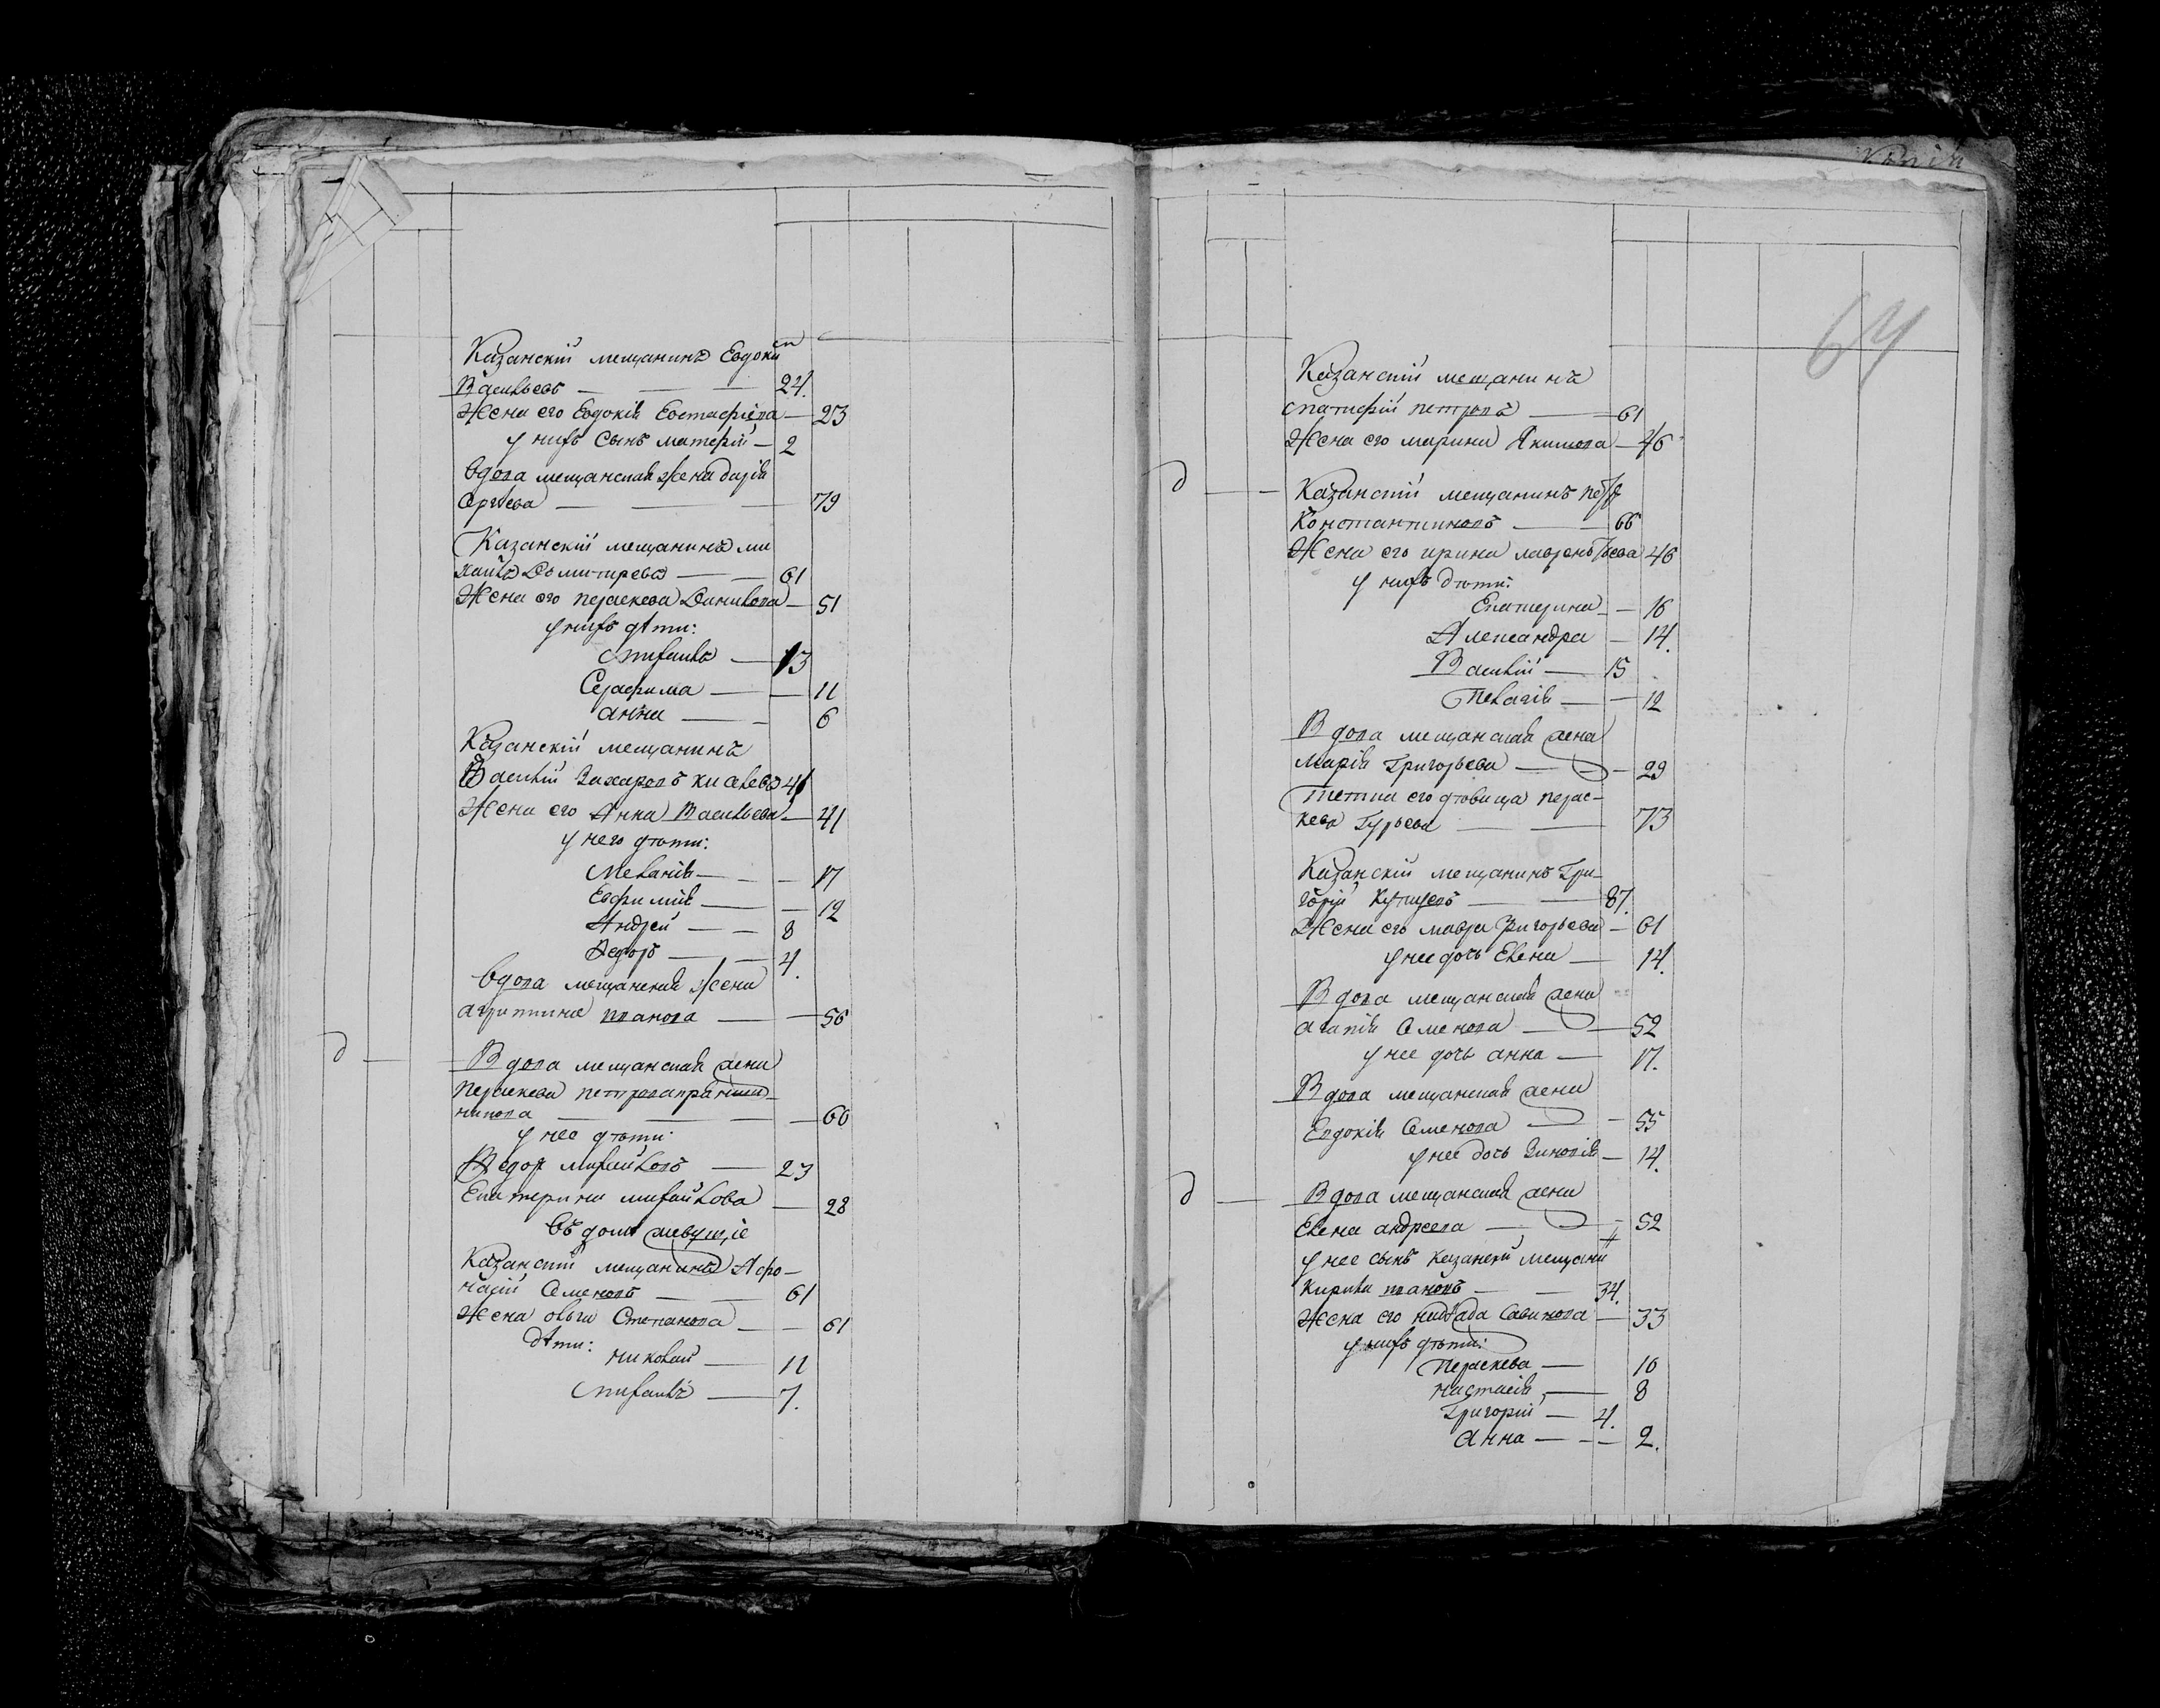 Казанскій мещанинъ Евдоким
Васильевъ — 24.
Жена его Евдокія Евстафіева — 23
у нихъ сынъ матфей — 2
Вдова мещанская жена дарія
Сергѣева — 79
Казанскій мещанинъ ми
хаила Дъмитрева — 61
Жена его Пераскева Данилова — 51
у нихъ дѣти:
Михаила — 13
Серафима — 11
анна — 6
Казанскій мещанинъ
Василій Захаровъ киселевъ 41
Жена его Анна Васильева — 41
у него дѣти:
Меланія — 17
Евфимія — 12
Андрей — 8
Федоръ — 4.
Вдова мещанская жена
агрипина иванова — 56
д — Вдова мещанская жена
Пераскева петрова
никова — 60
у нее дѣти:
Федоръ михайловъ — 23
Екатерина михайлова — 28
въ доме живущіе
Казанскій мещанинъ Афо-
насій Семеновъ — 61
Жена ольга Степанова — 61
дѣти:
николай — 11
Михаилъ — 7.
Копія
64
Казанскій мещанинъ
петровъ — 61
Жена его марина Якимова — 46
д — Казанскій мещанинъ петръ
Константиновъ — 66
Жена его ирина лаврентьева 46
у нихъ дѣти:
Екатерина — 16
Александра — 14.
Василій — 15
Пелагія — 12
Вдова мещанская жена
Марія Григорьева — 29
Тетка его девица перас-
кева Гурьева — 73
Казанскій мещанинъ Гри-
горій — 87.
Жена его мавра Григорьева — 61
у нее дочь Елена — 14.
Вдова мещанская жена
агапія Семенова — 52
у нее дочь анна — 17.
Вдова мещанская жена
Евдокія Семенова — 55
у нее дочь Зиновія — 14.
д — Вдова мещанская жена
Елена андреева — 52
у нее сынъ Казанскій мещани
Кирила ивановъ — 34.
Жена его Савинова — 33
у нихъ дѣти:
Пераскева — 10
настасія — 8
Григорій — 4.
Анна — 2.